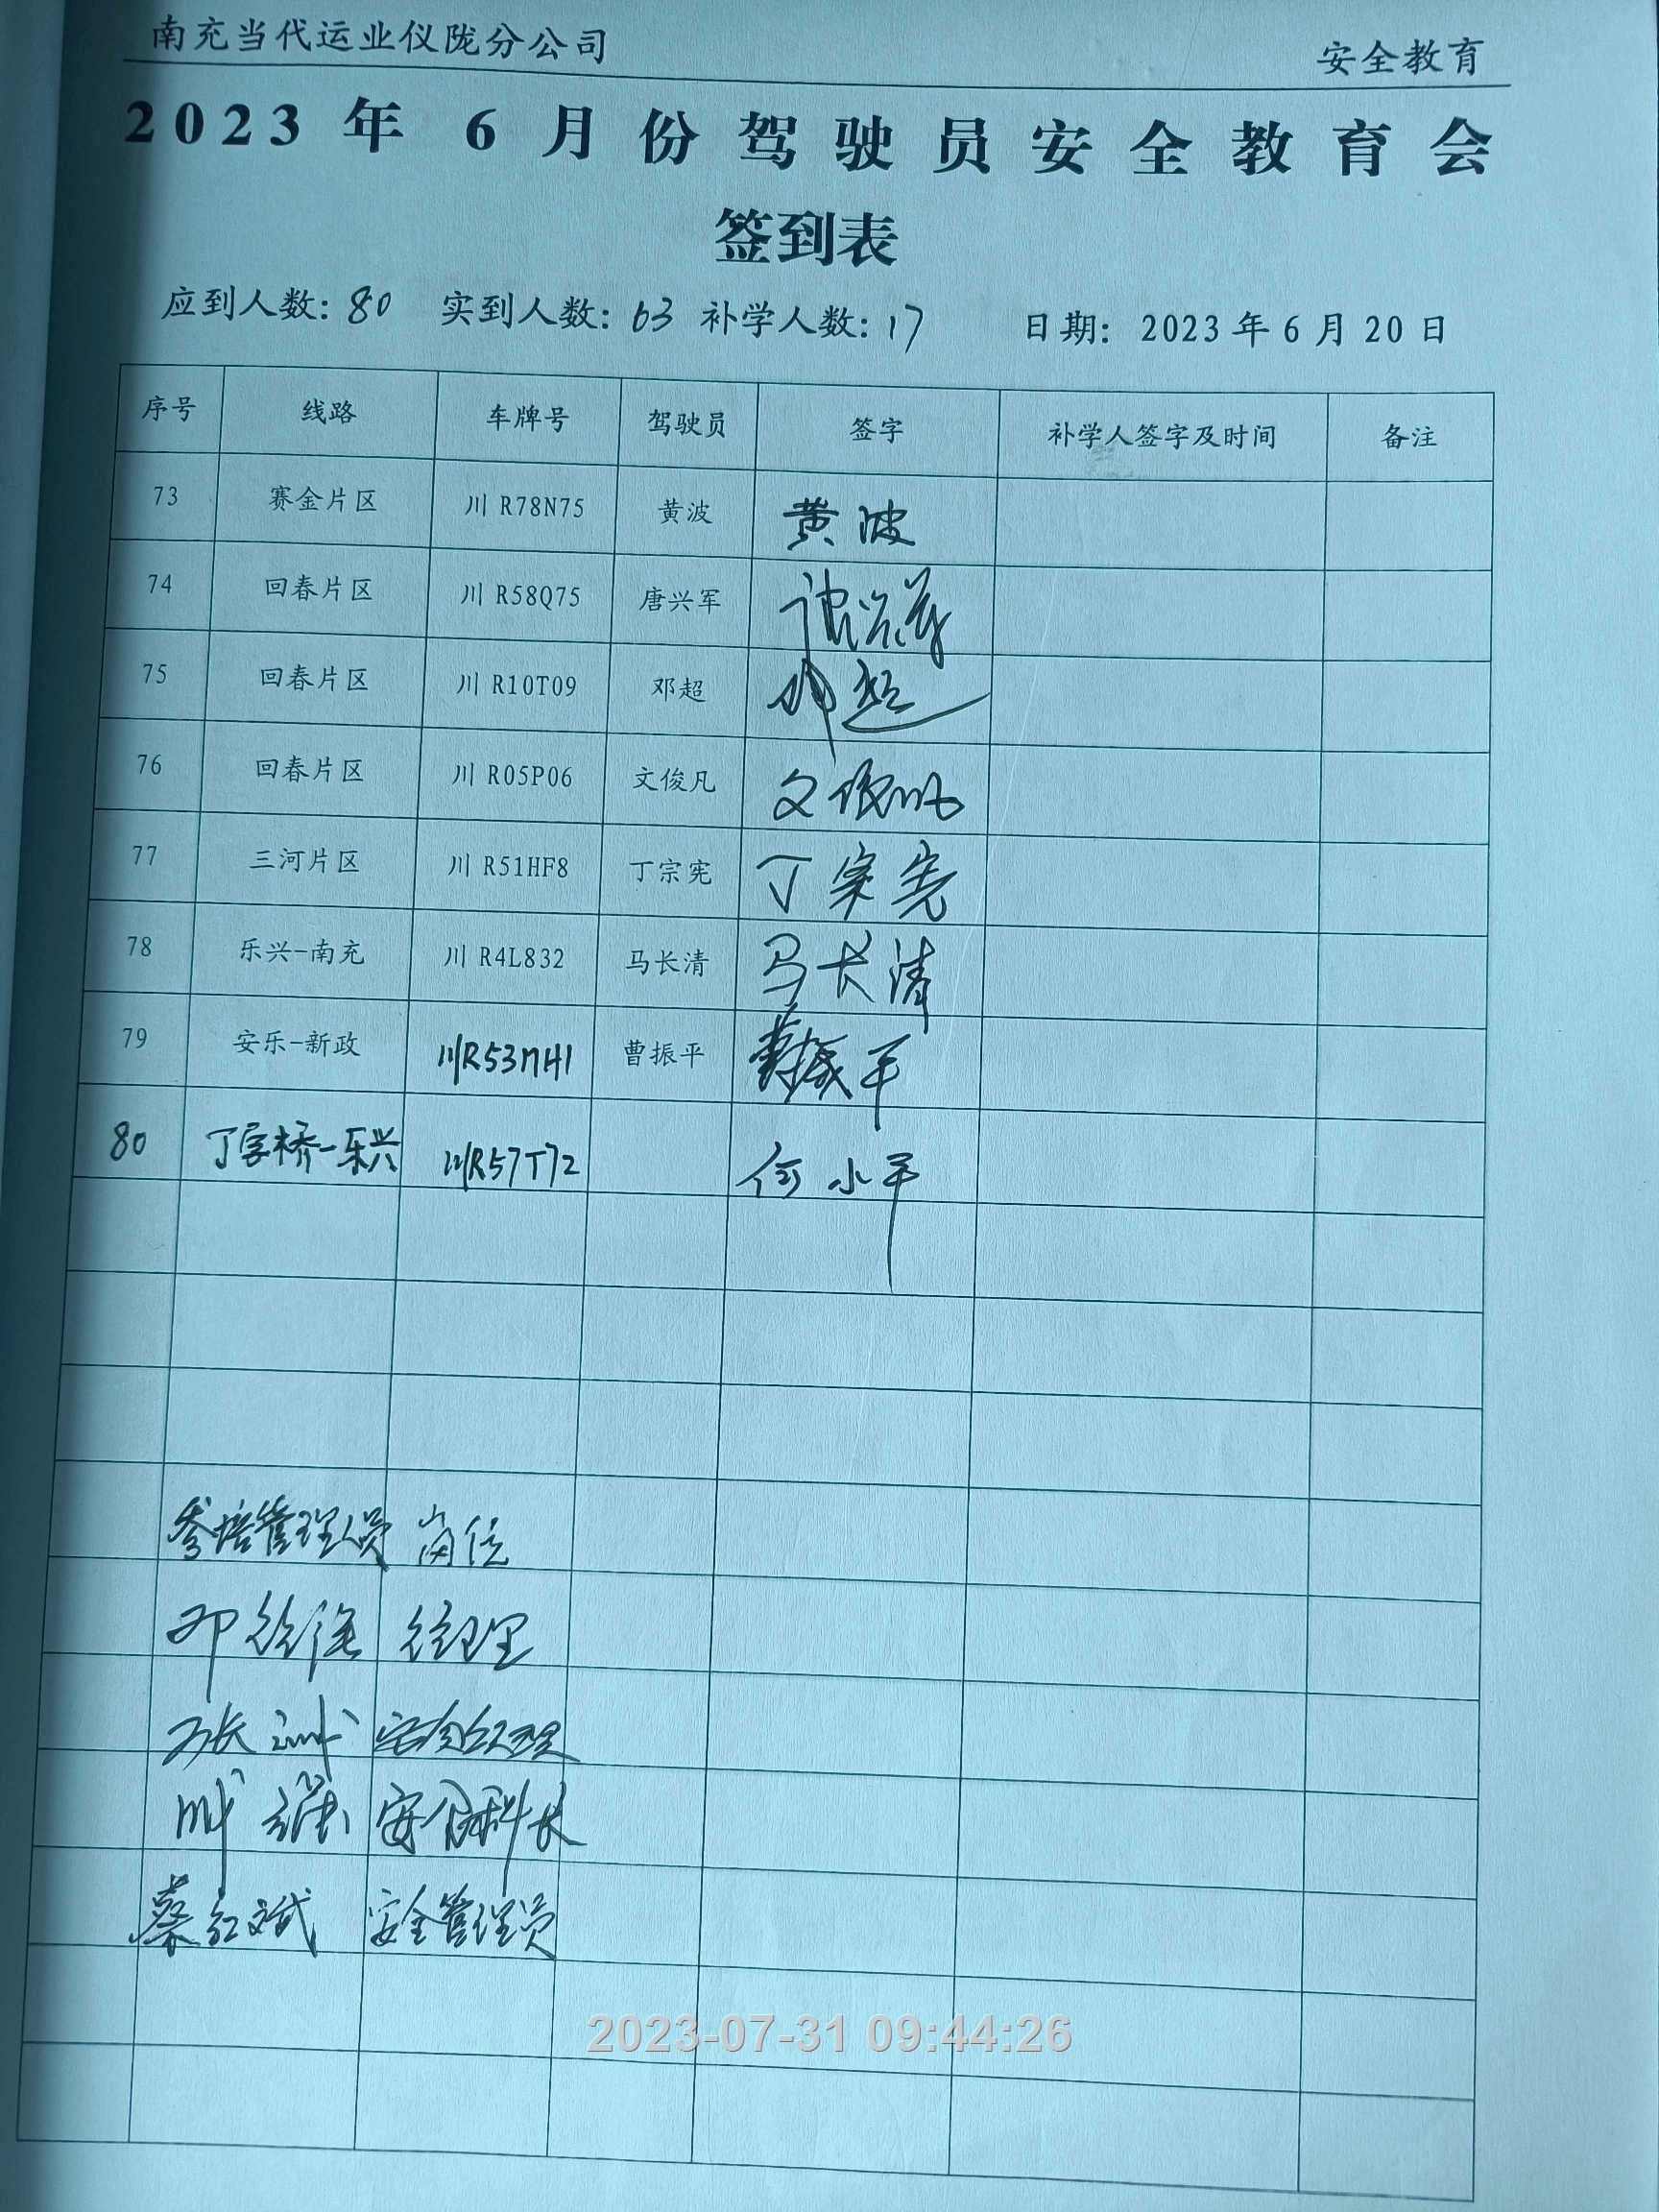 南充当代运业仪陇分公司 安全教育
2023年6月份驾驶员安全教育会
签到表
应到人数：80 实到人数：63 补学人数：17 日期：2023年6月20日
序号 线路 车牌号 驾驶员 签字 补学人签字及时间 备注
73 赛金片区 川R78N75 黄波 黄波
74 回春片区 川R58Q75 唐兴军
75 回春片区 川R10T09 邓超 邓超
76 回春片区 川R05P06 文俊凡 文俊凡
77 三河片区 川R51HF8 丁宗宪 丁宗宪
78 乐兴-南充 川R4L832 马长清 马长清
79 安乐-新政 川R53M41 曹振平 曹振平
80 丁字桥-乐兴 川R57T72 何小平
参培管理人员 岗位
邓 经理
张
安全科长
蔡红斌 安全管理员
2023-07-31 09:44:26